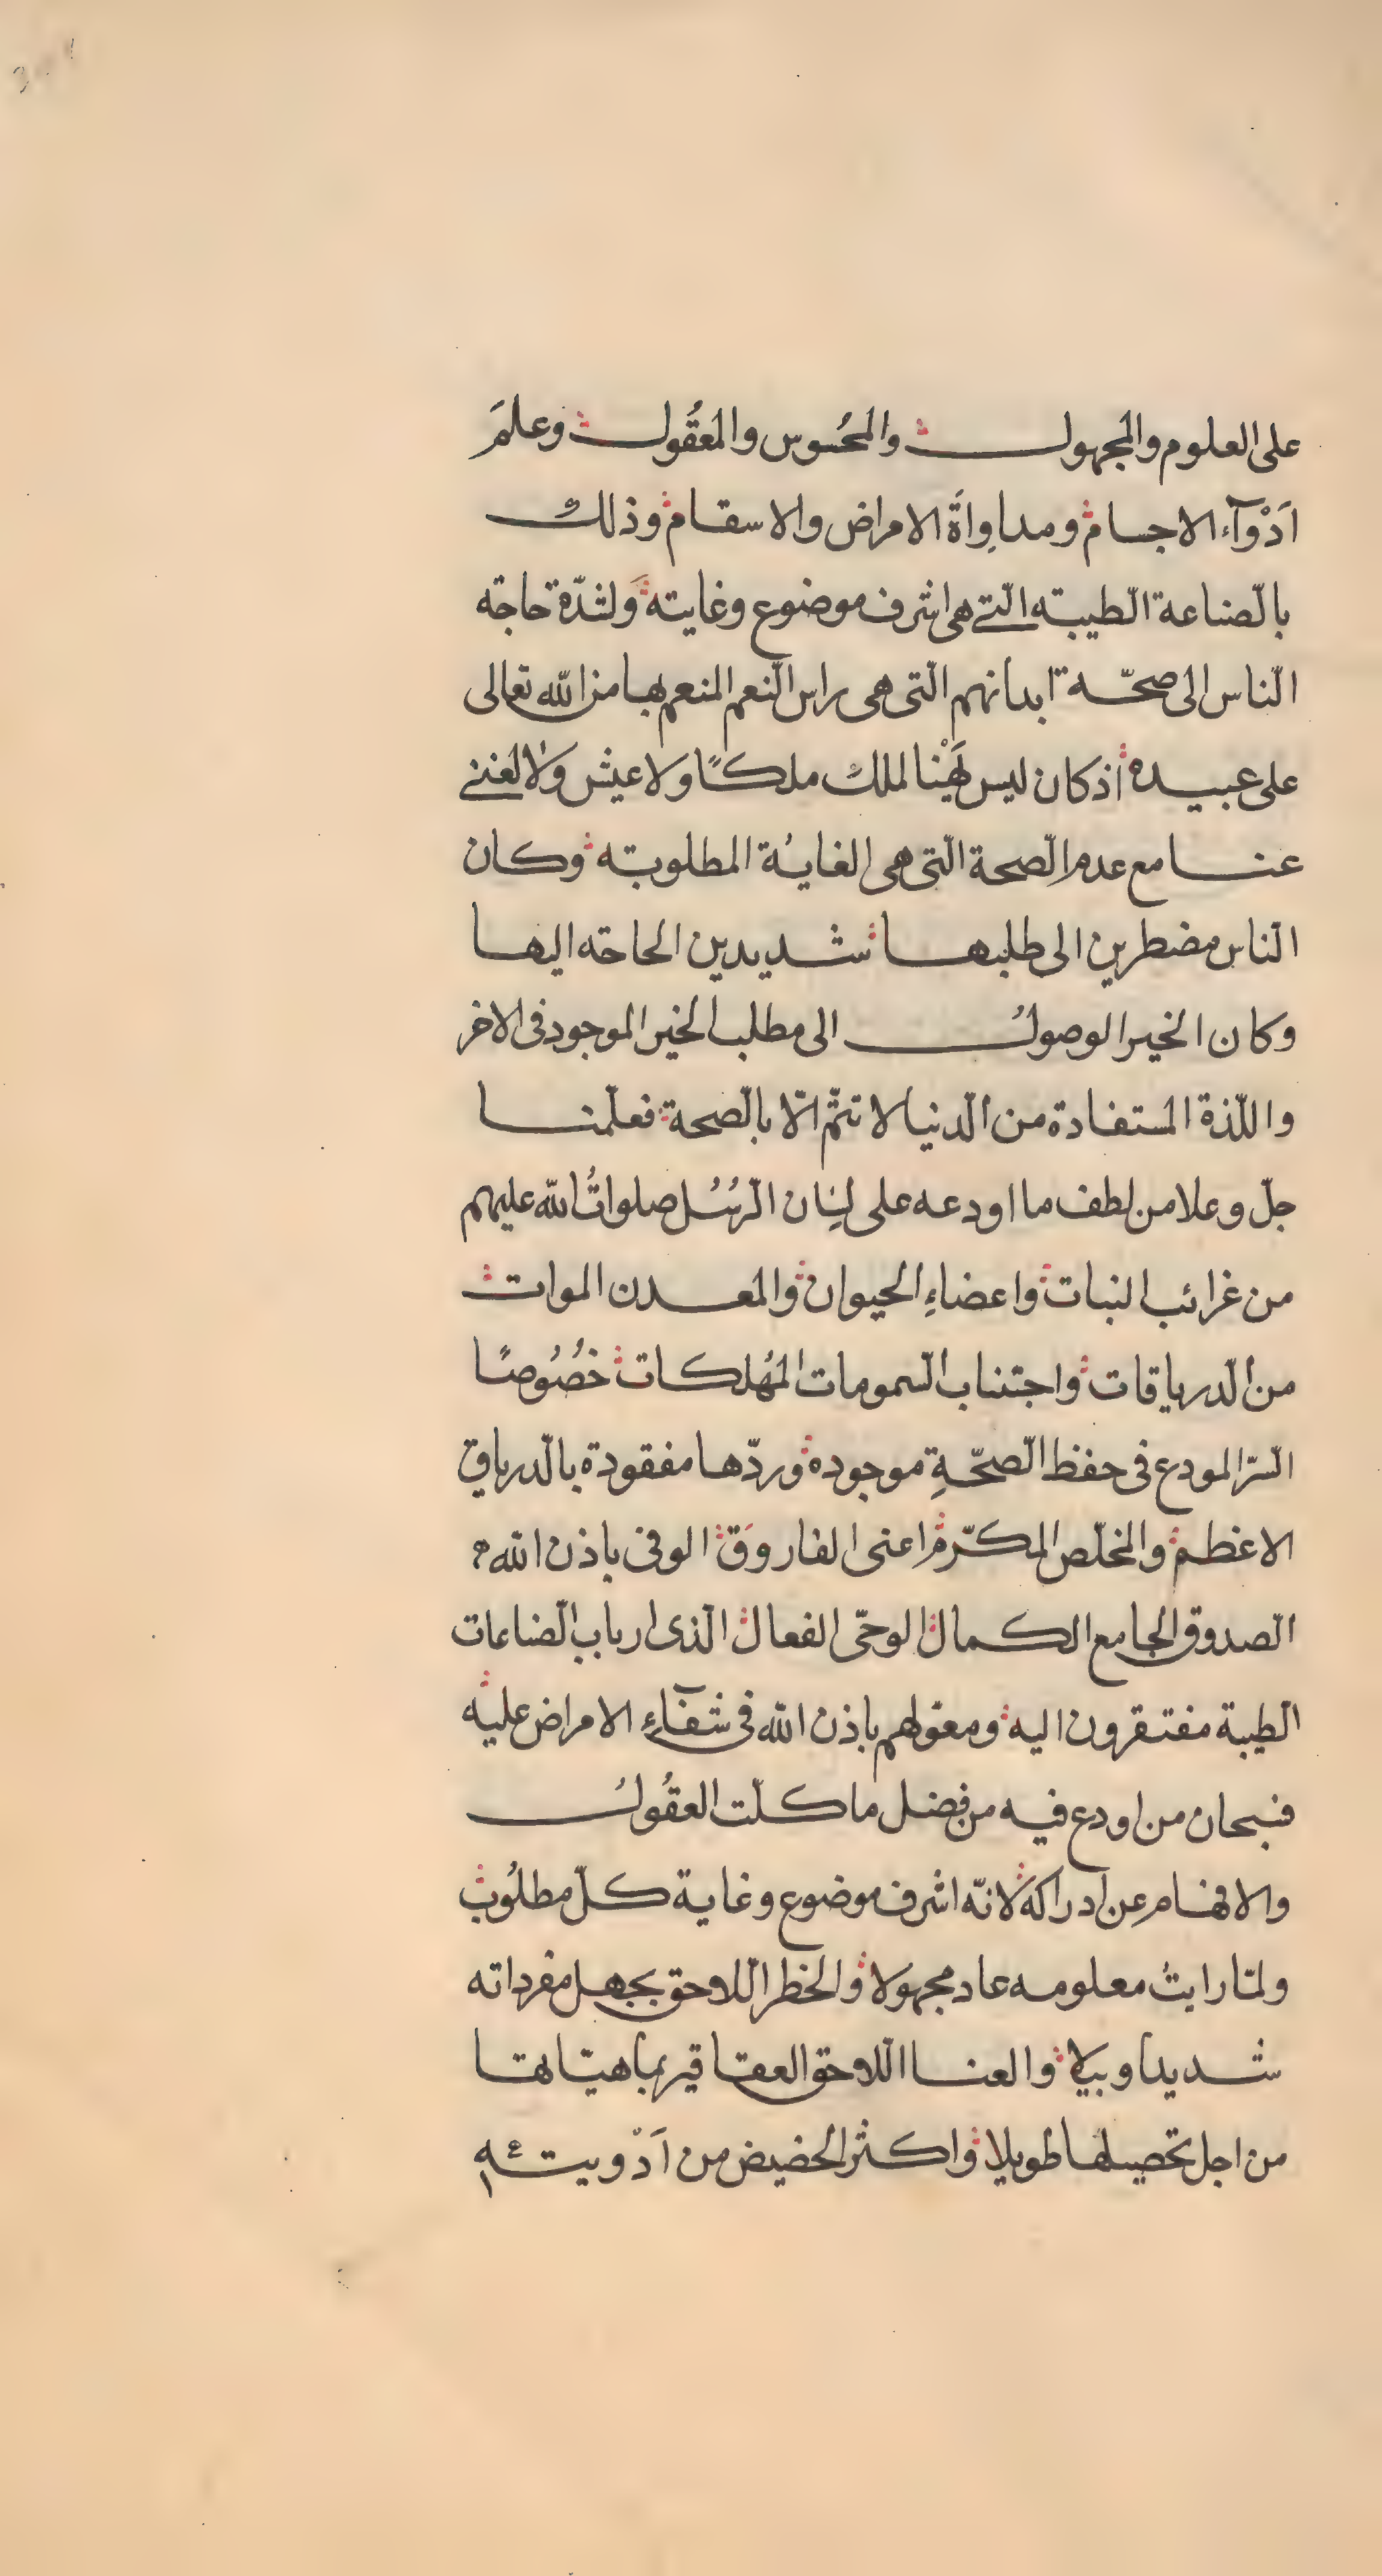 على العلوم والمجهول والمحُسوس والمعَقُول وعلمَ
اَدْوآء الاجسام ومداواَة الامراض والاسقام وذلك
بالّصناعة الّطيبته الّتے هى اشرف موضوع وغايته ولشدّة حاجة
الّناس الى صحّة ابدانهم الّتى هى راس الّنعم المنعم بها من الله تعالى
على عبيده اذ كان ليس لَهْنا لملك ملكًا ولا عيش ولا لغنے
عنا مع عدم الّصحة الّتى هى الغايُة المطلوبّه وكان
الّناس مضطرين الى طلبها شديدين الحاجّه اليها
وكان الخير الوصولُ الى مطلب الخير الموجود فى الاخر
واللّذة المستفادة من الّدنيا لا تتّم الّا بالّصحة فعلّمنا
جلّ وعلا من لطف ما اودعه على لِسان الّرسُل صلواتُ الله عليهم
من غرائب النبات واعضاءِ الحيوان والمعدن الموات
من الّدرياقات واجتناب الّسمومات المهُلكات خصُوصًا
الّسرّ المودع فى حفظ الّصحّةِ موجوده وردّها مفقودة بالّدرياق
الاعظم والمخلّص المكّرم اعنى الفاروَق الوفى باذن الله
الّصدوق الجامع الكمال الوحّى الفعال الّذى ارباب الّصناعات
الّطبية مفتقرون اليه ومعوّلهم باذن الله فى شفآءِ الامراض عليه
فسبحان من اودع فيه من فضل ما كلّت العقُولُ
والافهام عن ادراكه لانّه اشرف موضوع وغاية كلّ مطلُوب
ولمّا رايتُ معلومه عاد مجهولا والخطر الّلاحق بجهل مفرداته
شديدا وبيلا والعنا الّلاحق العقاقير بماهيّاتها
من اجل تحصيلها طويلا واكثر الحضيض من اَدْويته